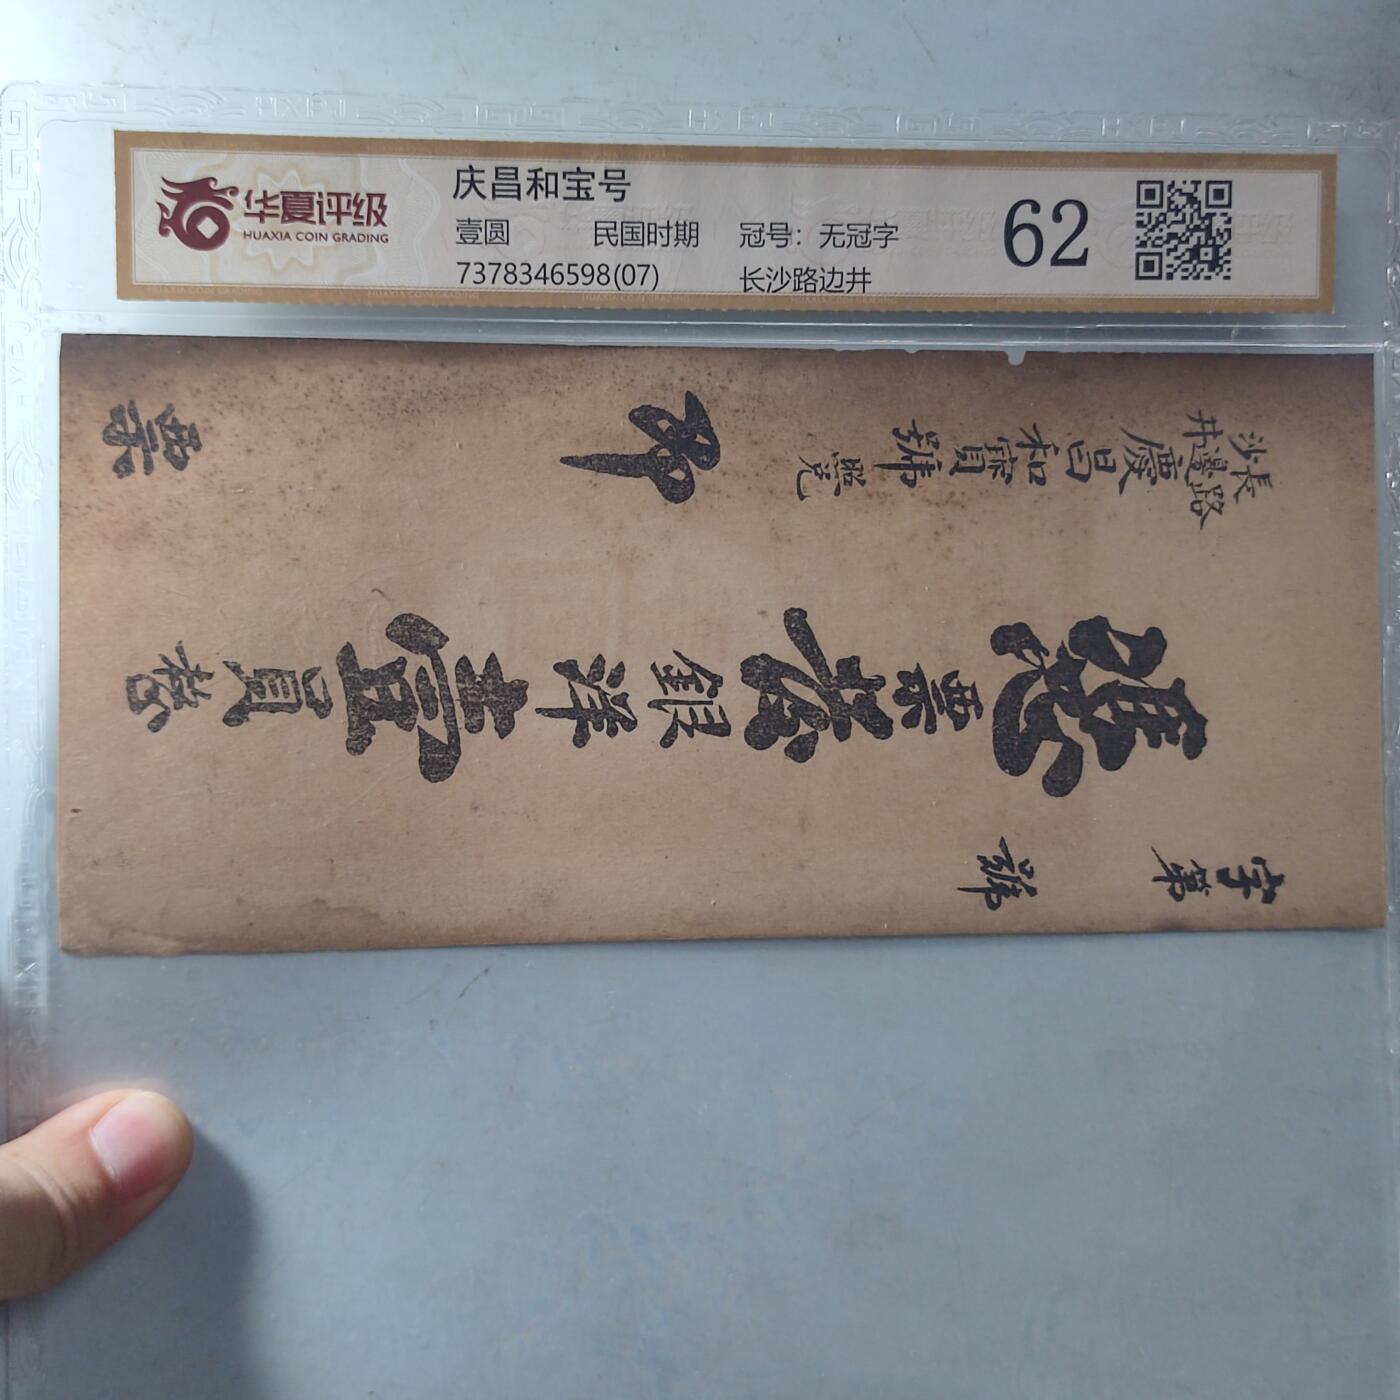 华夏评级
HUAXIA COIN GRADING
庆昌和宝号
壹圆 民国时期 冠号：无冠字
7378346598(07) 长沙路边井
62
字第 號
憑票發銀洋壹員整
長沙
路邊井
慶昌和寶號照兌
票